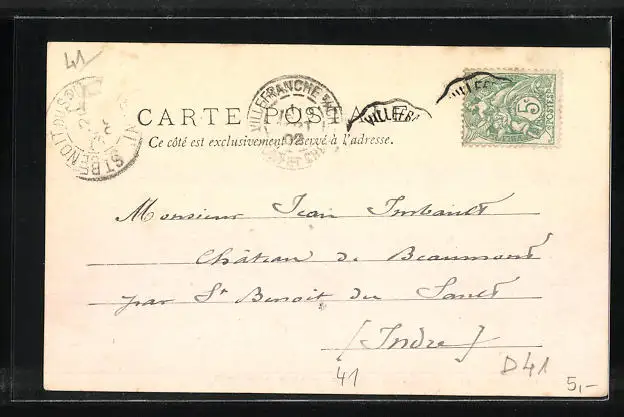 41
ST BENOIT DU S
VILLEFRANCHE
02
VILLEFRA
VILLEF
5
POSTES
CARTE POSTALE
Ce côté est exclusivement réservé à l'adresse.
Monsieur Jean Imbault
Château de Beaumont
par St Benoit du Sault
(Indre)
41
D41
5,-